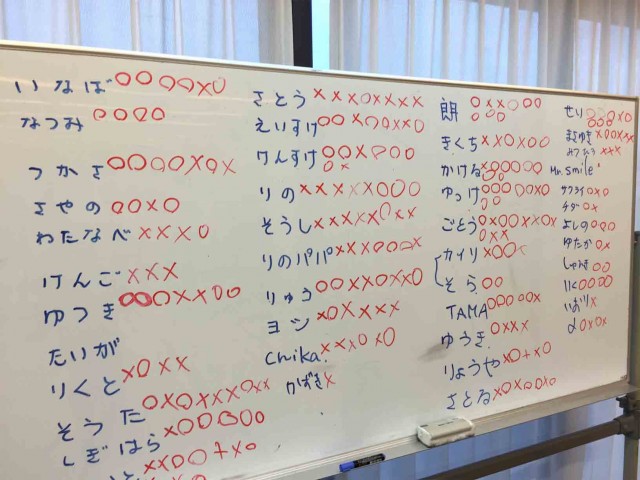 いなば○○○○×○
なつみ○○○○
つかさ○○○○×○×
さやの○○×○
わたなべ××××○
けんご×××
ゆづき○○○××○○
たいが
りくと×○××
そうた○×○×××○××
しぎはら×○○○○○
さとう×××○××××
えいすけ○○×○○××○
けんすけ○○×○○○
○×
りの×××××○○○
そうし×××××○××
りのパパ×××○○○×
りゅう○○××○××○
ヨン×○××××
chika.×××○×○
かばき×
朗○××○○○
○○○
きくち××○×○○
かける×○○○○○
○○
ゆっけ○○○○○×○
○○○
ごとう○×○○××○×
○××
カイリ×○○×
そら○○
TAMA○○○○○×
ゆうき○×××
りょうや×○+×○
さとる×○×○○×○
せい○○○×○
○○○
まさゆき×○×××
みつたろう×××
Mr.smile
サクライ○×○
チダー○×
よしの○○○
ゆたか○×
しゅんき○○
いく○○○○
いおり×
d○×○×